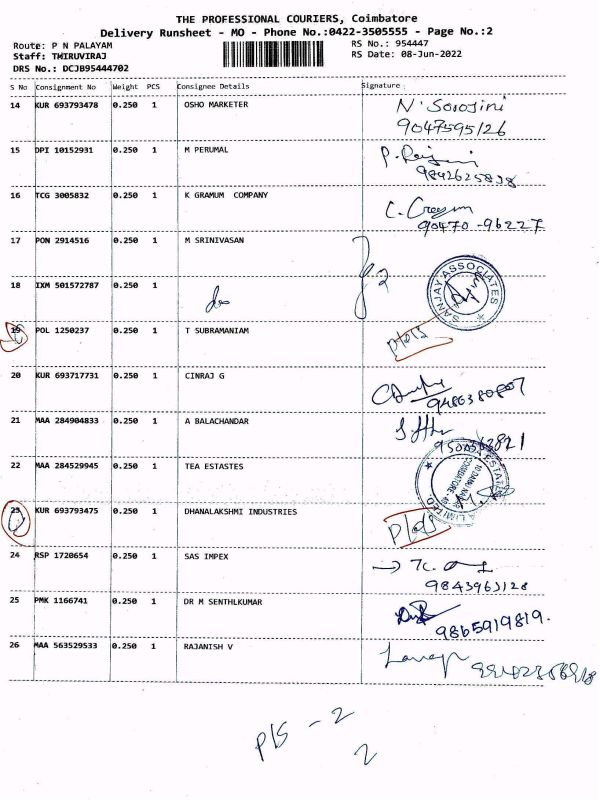 THE PROFESSIONAL COURIERS, Coimbatore
Delivery Runsheet - MO - Phone No.:0422-3505555 - Page No.:2
Route: P N PALAYAM RS No.: 954447
Staff: THIRUVIRAJ RS Date: 08-Jun-2022
DRS No.: DCJB95444702
S No Consignment No Weight PCS Consignee Details Signature
14 KUR 693793478 0.250 1 OSHO MARKETER N. Sorojini
9047595126
15 DPI 10152931 0.250 1 M PERUMAL
9842625838
16 TCG 3005832 0.250 1 K GRAMUM COMPANY
90470-96227
17 PON 2914516 0.250 1 M SRINIVASAN
18 IXM 501572787 0.250 1 SANJAY ASSOCIATES
19 POL 1250237 0.250 1 T SUBRAMANIAM
20 KUR 693717731 0.250 1 CINRAJ G
9486380807
21 MAA 284904833 0.250 1 A BALACHANDAR
22 MAA 284529945 0.250 1 TEA ESTASTES
23 KUR 693793475 0.250 1 DHANALAKSHMI INDUSTRIES
24 RSP 1720654 0.250 1 SAS IMPEX
9843963128
25 PMK 1166741 0.250 1 DR M SENTHLKUMAR
9865919819.
26 MAA 563529533 0.250 1 RAJANISH V
P/S - 2
2